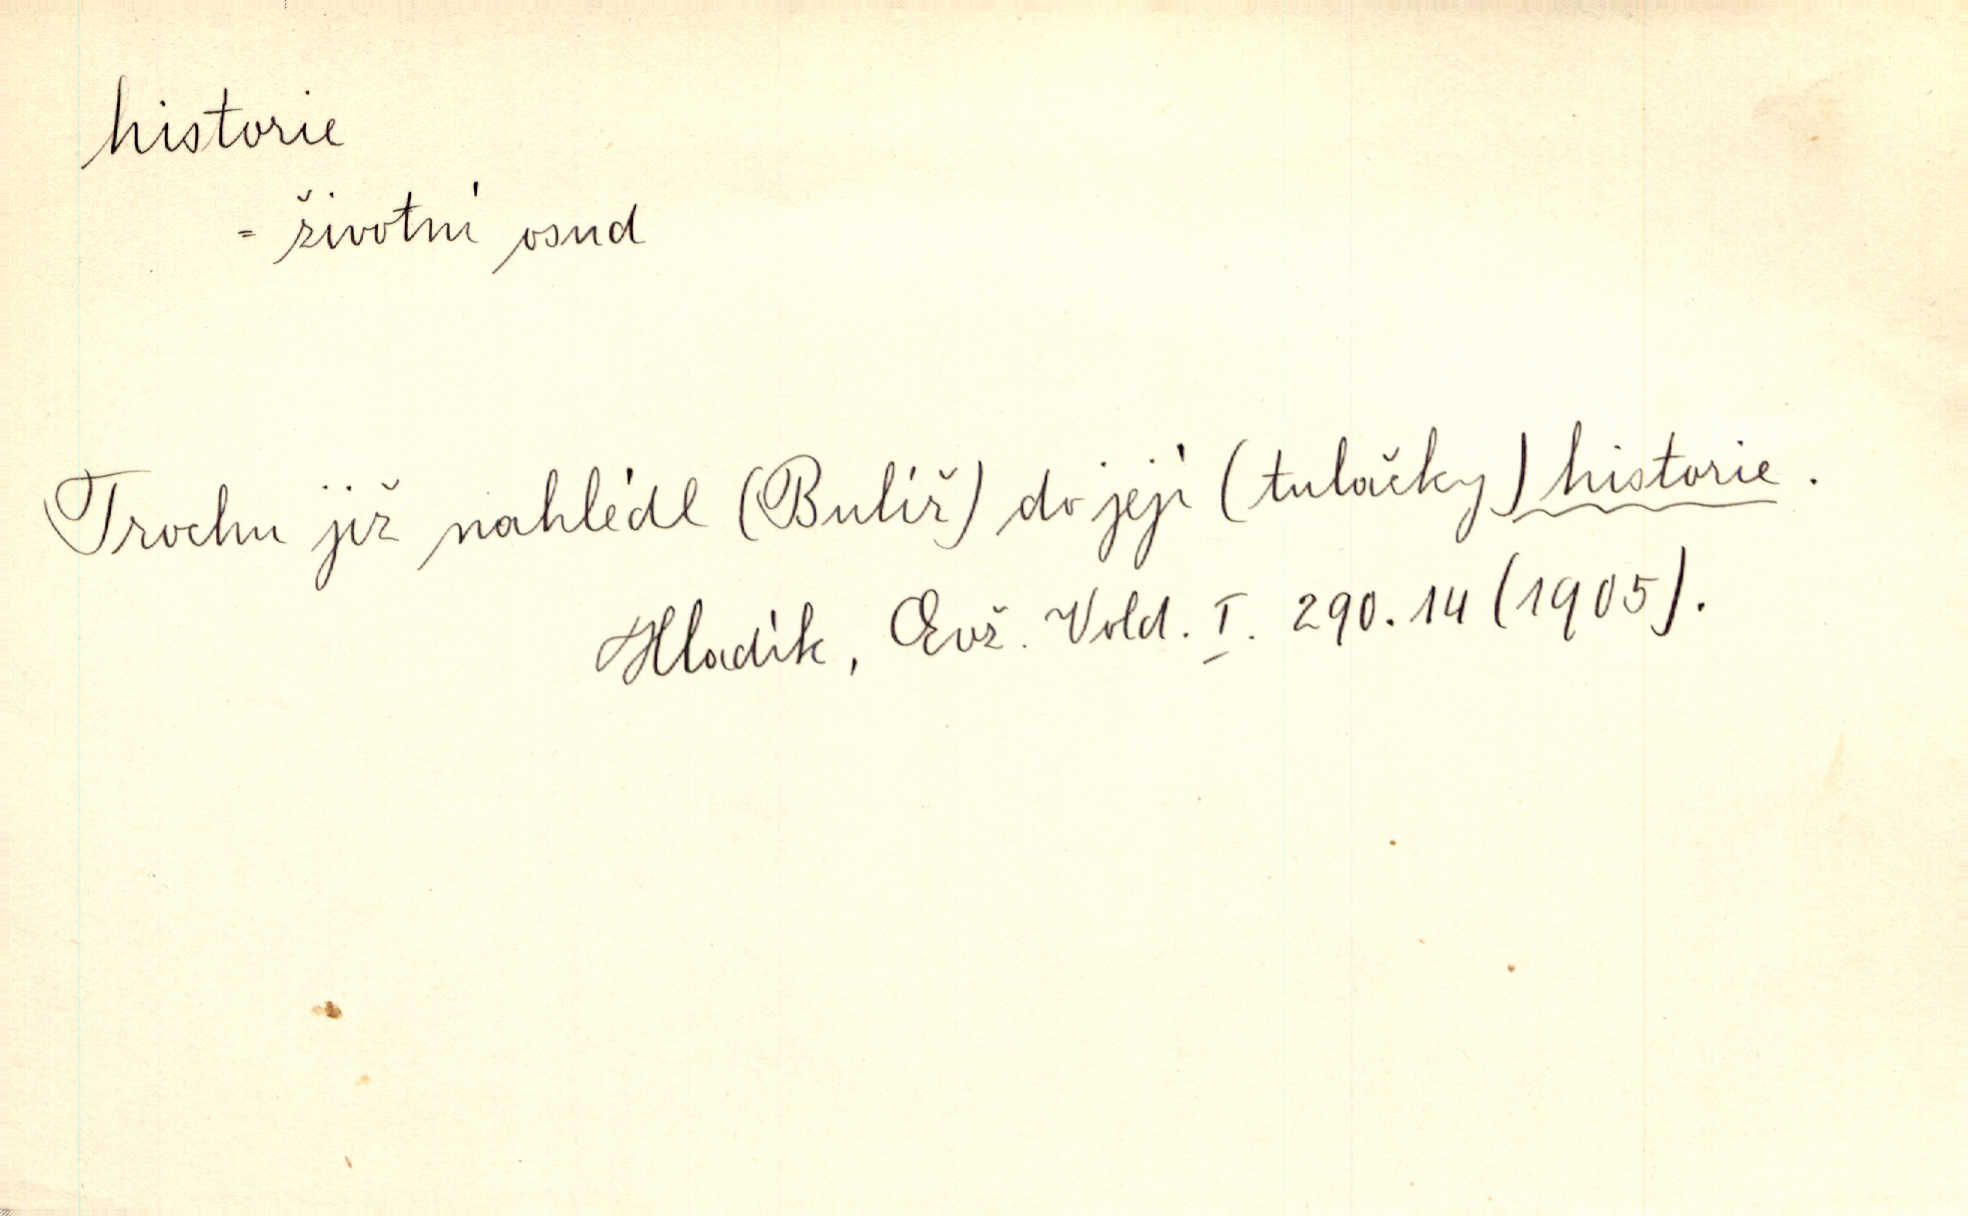 historie
= životní osud
Trochu již nahlédl (Bulíř) do její (tulačky) historie.
Hladík, Evž. Vold. I. 290.14 (1905).